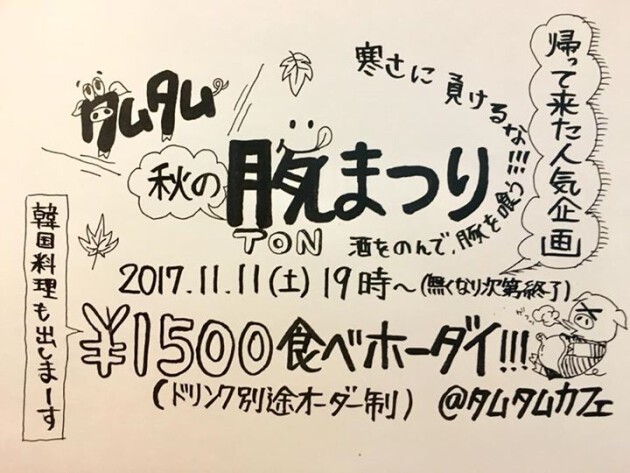 帰って来た人気企画
寒さに負けるな!!!
タムタム
秋の豚まつり
TON
酒をのんで、豚を喰う
韓国料理も出しまーす
2017.11.11(土)19時〜(無くなり次第終了)
¥1500食べホーダイ!!!
(ドリンク別途オーダー制)
@タムタムカフェ